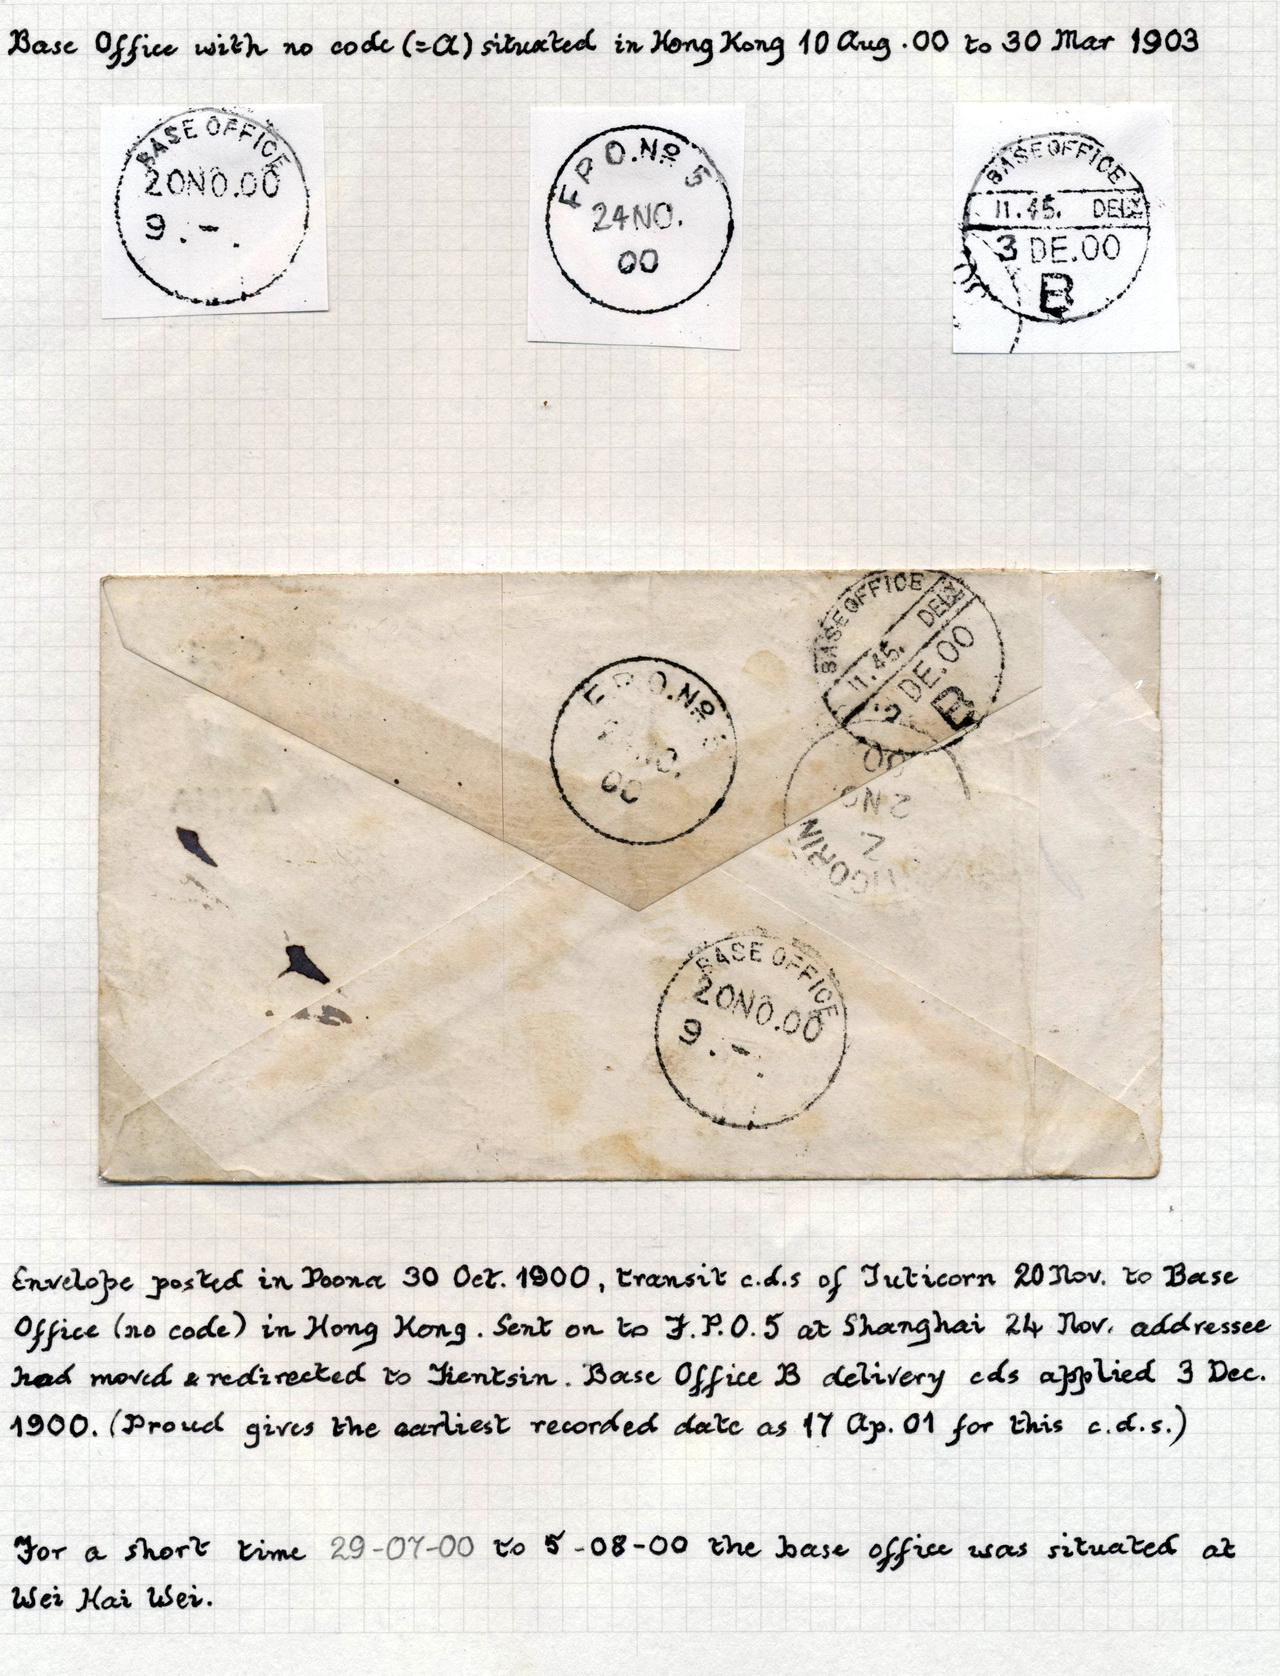 Base Office with no code (=A) situated in Hong Kong 10 Aug.00 to 30 Mar 1903
BASE OFFICE
20NO.00
9.-.
F P O.No 5
24NO.
00
BASE OFFICE
11.45. DELY
3 DE.00
B
BASE OFFICE
11.45. DELY
3 DE.00
B
F.P.O.No 5
NO.
00
00
2 NO
7
TICORIN
BASE OFFICE
20NO.00
9.-.
Envelope posted in Poona 30 Oct. 1900, transit c.d.s of Tuticorn 20 Nov. to Base
Office (no code) in Hong Kong. Sent on to F.P.O.5 at Shanghai 24 Nov. addressee
had moved & redirected to Tientsin. Base Office B delivery cds applied 3 Dec.
1900. (Proud gives the earliest recorded date as 17 Ap.01 for this c.d.s.)
For a short time 29-07-00 to 5-08-00 the base office was situated at
Wei Hai Wei.